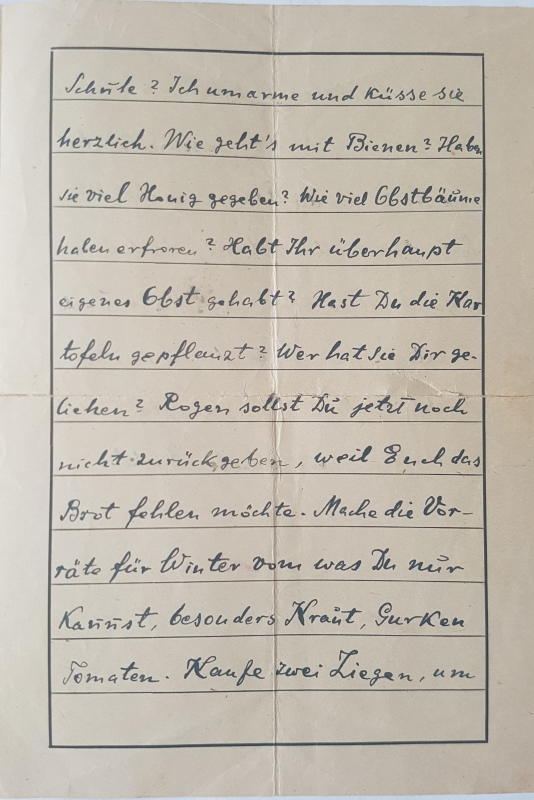 Schule? Ich umarme und küsse sie
herzlich. Wie geht's mit Bienen? Haben
sie viel Honig gegeben? Wie viel Obstbäume
haben erfroren? Habt Ihr überhaupt
eigenes Obst gehabt? Hast Du die Kar
tofeln gepflanzt? Wer hat sie Dir ge-
liehen? Rogen sollst Du jetzt noch
nicht zurückgeben, weil Euch das
Brot fehlen möchte. Mache die Vor-
räte für Winter vom was Du nur
Kannst, besonders Kraut, Gurken
Tomaten. Kaufe zwei Ziegen, um